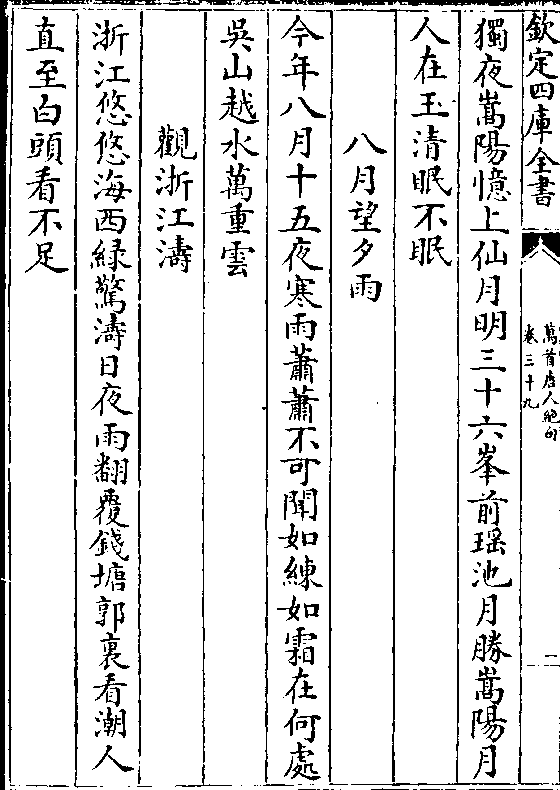 欽定四庫全書
萬首唐人絶句
卷三十九
二
獨夜嵩陽憶上仙月明三十六峯前瑶池月勝嵩陽月
人在玉清眠不眠
八月望夕雨
今年八月十五夜寒雨蕭蕭不可聞如練如霜在何處
吳山越水萬重雲
觀浙江濤
浙江悠悠海西緑驚濤日夜雨翻覆錢塘郭裏看潮人
直至白頭看不足